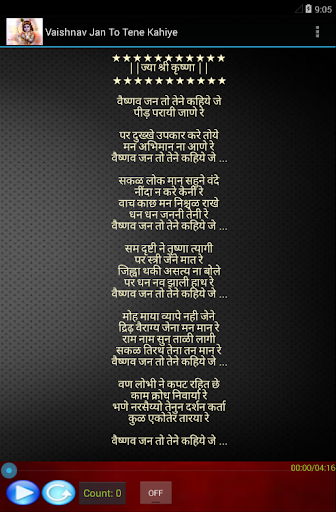 9:05
Vaishnav Jan To Tene Kahiye
★★★★★★★★★★
||ज्या श्री कृष्णा||
★★★★★★★★★★
वैष्णव जन तो तेने कहिये जे
पीड़ परायी जाणे रे
पर दुख्खे उपकार करे तोये
मन अभिमान ना आणे रे
वैष्णव जन तो तेने कहिये जे ...
सकळ लोक मान सहुने वंदे
नींदा न करे केनी रे
वाच काछ मन निश्चळ राखे
धन धन जननी तेनी रे
वैष्णव जन तो तेने कहिये जे ...
सम दृष्टी ने तृष्णा त्यागी
पर स्त्री जेने मात रे
जिह्वा थकी असत्य ना बोले
पर धन नव झाली हाथ रे
वैष्णव जन तो तेने कहिये जे ...
मोह माया व्यापे नही जेने
द्रिढ़ वैराग्य जेना मन मान रे
राम नाम सुन ताळी लागी
सकळ तिरथ तेना तन मान रे
वण लोभी ने कपट रहित छे
काम क्रोध निवार्या रे
भणे नरसैय्यो तेनुन दर्शन कर्ता
कुळ एकोतेर तारया रे
वैष्णव जन तो तेने कहिये जे ...
00:00/04:16
Count: 0
OFF